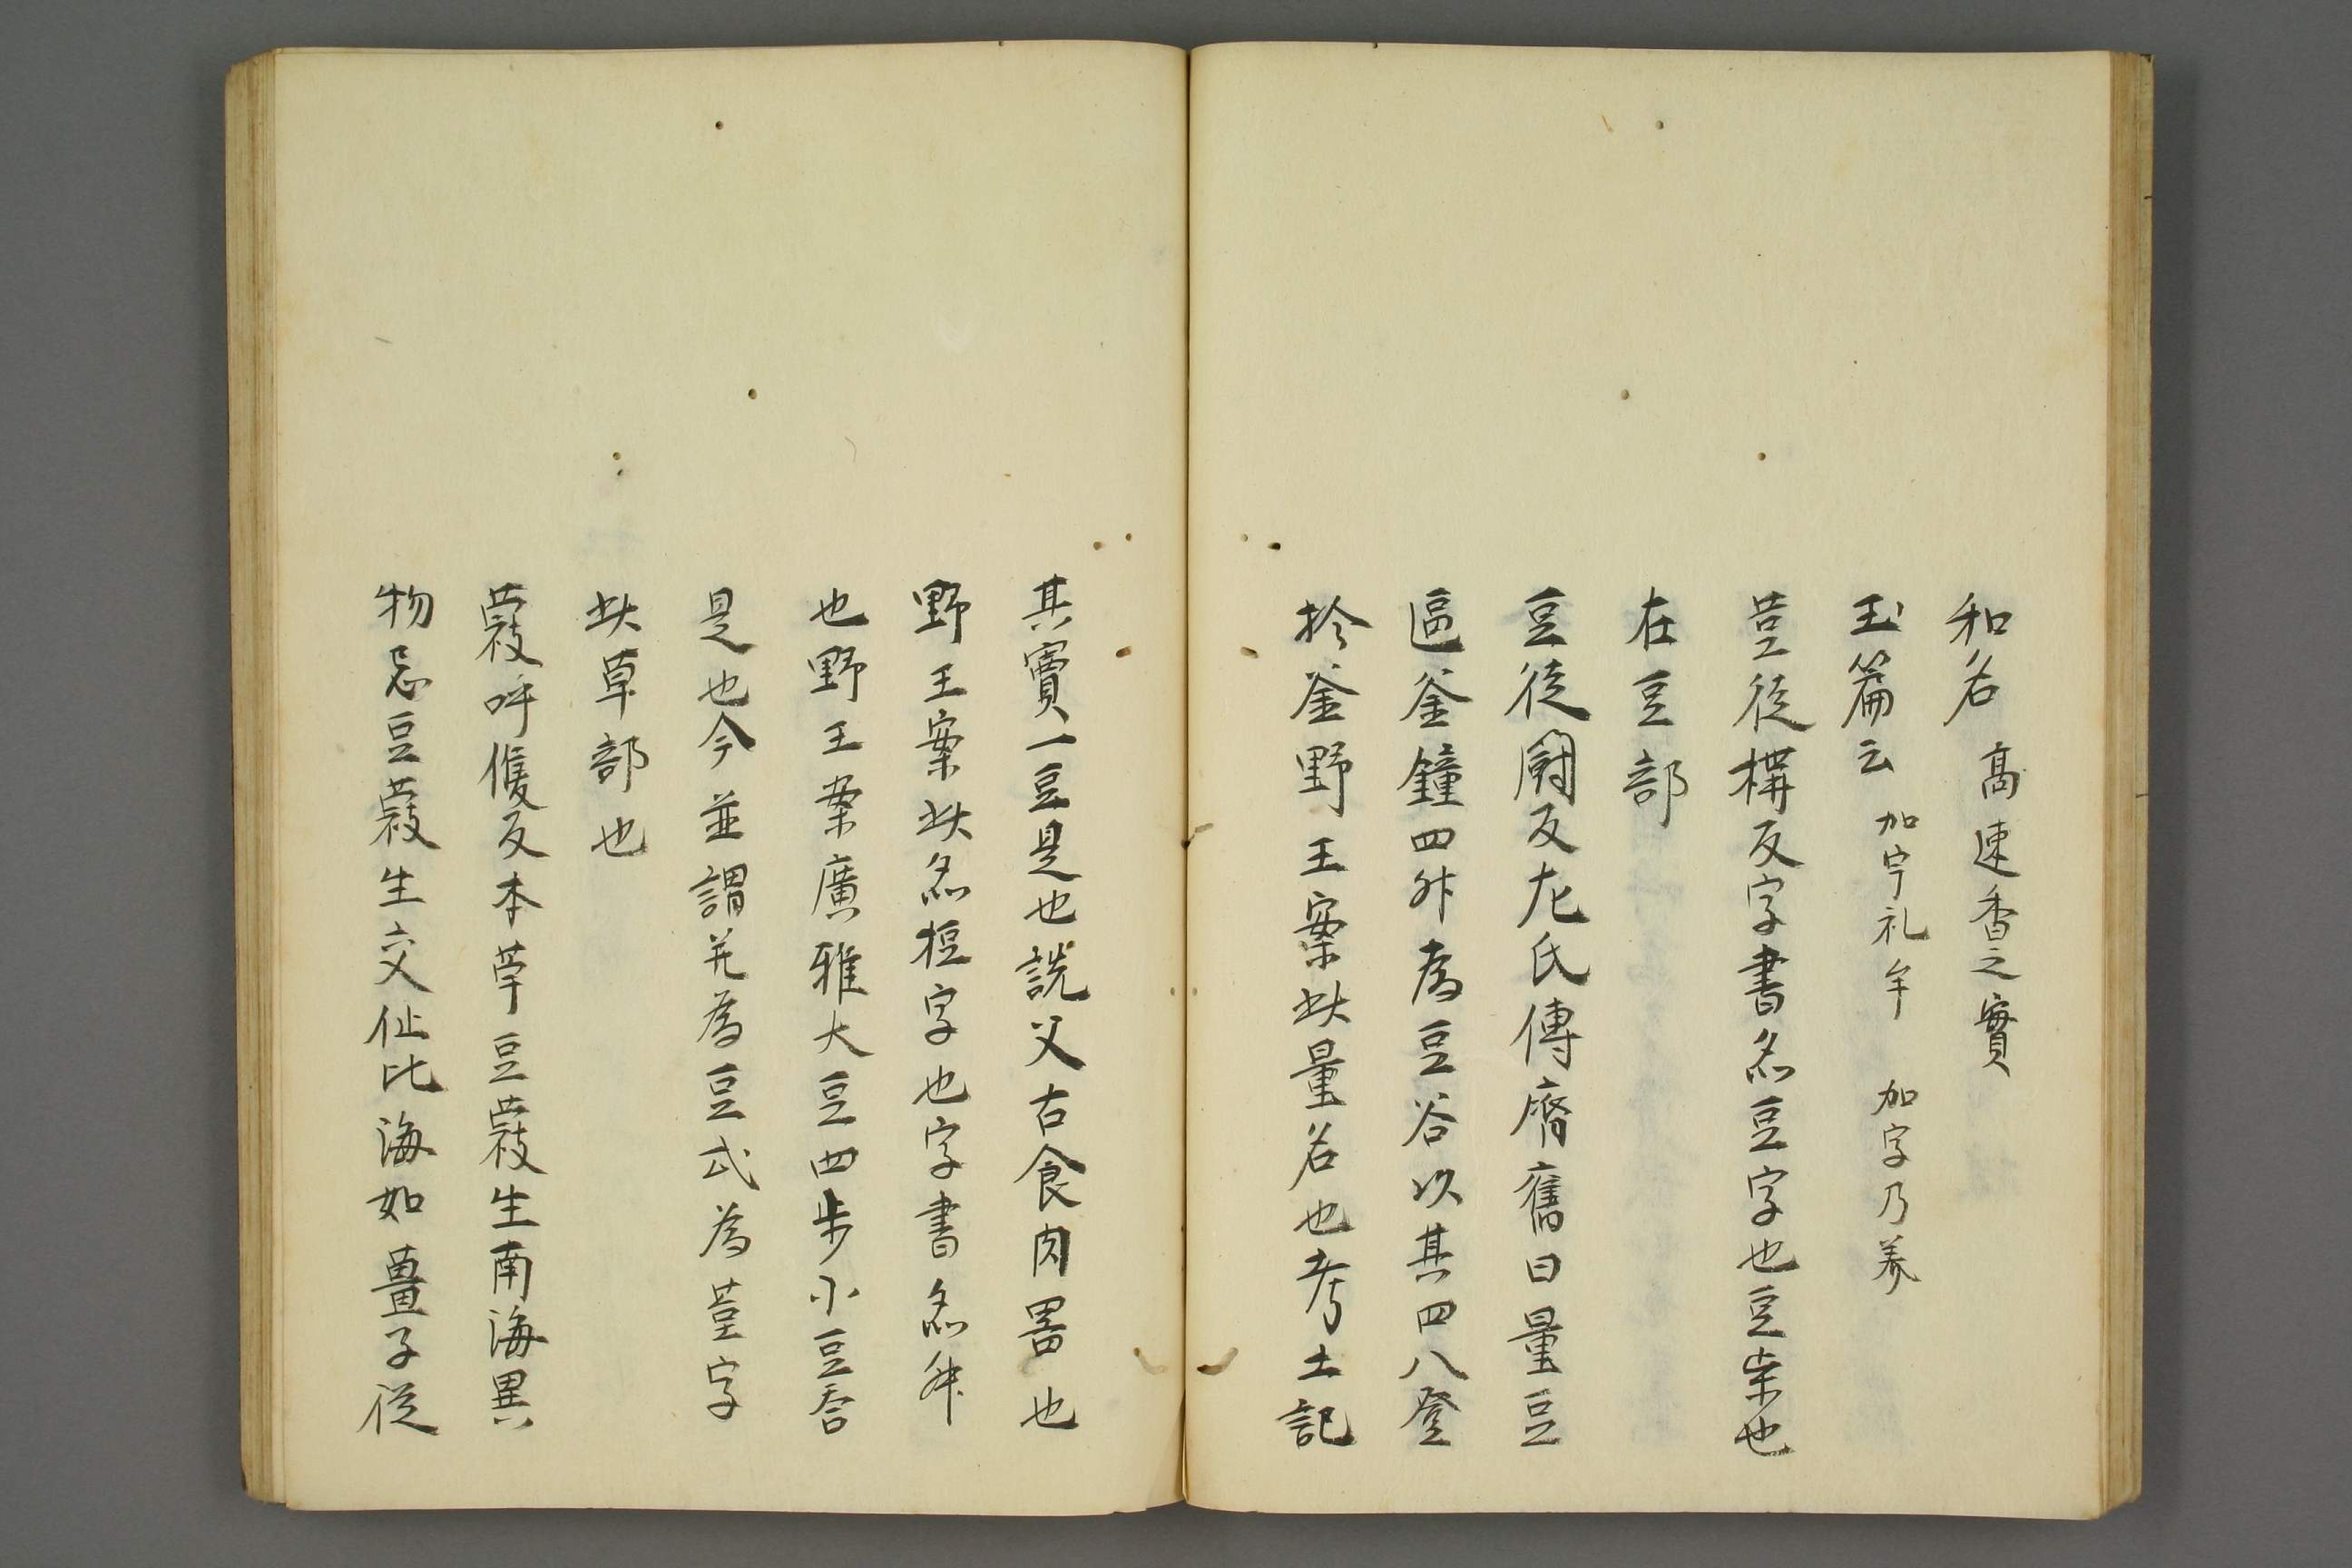 和名　高速香之實
玉篇云　加宇礼牟　加字乃养
荳徒構反字書名豆字也豆柴也
在豆部
豆徒鬪反左氏傳齊舊曰量豆
區釜鐘四升為豆谷以其四八登
於釜野王案此量名也考土記
其實一豆是也說父古食肉器也
野王案此名梪字也字書名舛
也野王案廣雅大豆四步小豆荅
是也今並謂芫為豆或為荳字
此草部也
蔻呼候反本草豆蔻生南海異
物志豆蔻生交仙比海如薑子從